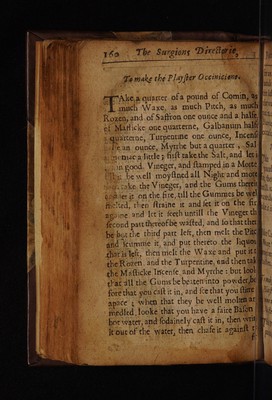 160 The Surgions Directorie,
To make the Playster Occinicians.
TAke a quarter of a pound of Comin, as
much Waxe, as much Pitch, as much
Rozen, and of Saffron one ounce and a halfe
of Masticke one quarterne, Galbanum halfe
quarterne, Turpentine one ounce, Incense
an ounce, Myrrhe but a quarter, Sal
a little; first take the Salt, and let
in good Vineger, and stamped in a Morter
be well moystned all Night and more
take the Vineger, and the Gums therein
it on the fire, till the Gummes be well
melted, then straine it and set it on the fire
againe and let it seeth untill the Vineger the
second part thereof be wasted, and so that there
be but the third part left, then melt the Pitch
and scumme it, and put thereto the liquour
that is left, then melt the Waxe and put it to
the Rozen, and the Turpentine, and then take
the Masticke Incense, and Myrrhe: but looke
that all the Gums be beaten into powder, be-
fore that you cast it in, and see that you stirre
apace; when that they be well molten and
medled, looke that you have a faire Bason
hot water, and sodainely cast it in, then wring
it out of the water, then chafe it against